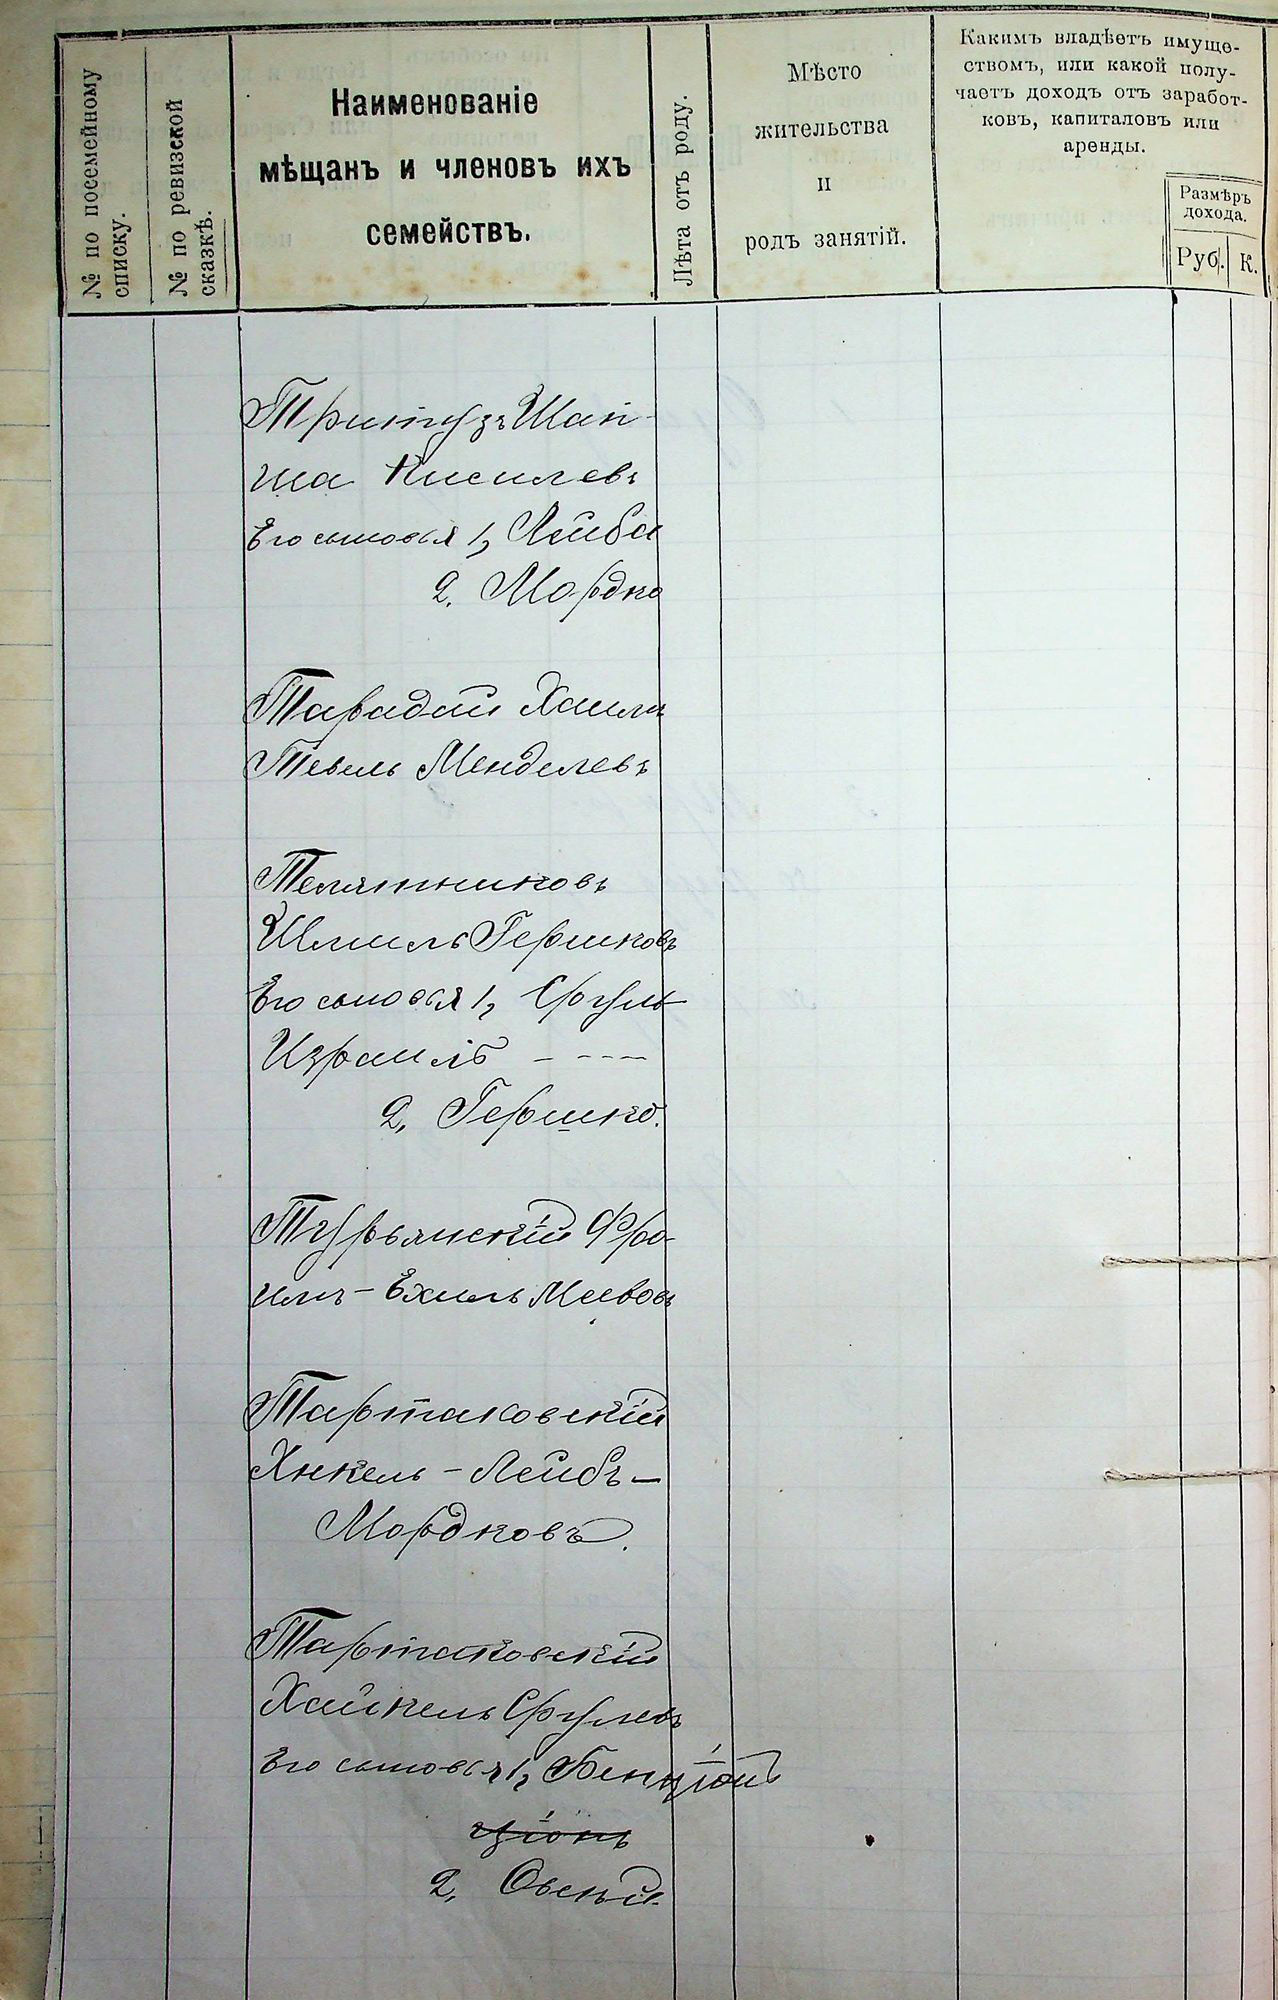 № по посемейному
списку.
№ по ревизской
сказкѣ.
Наименованіе
мѣщанъ и членовъ ихъ
семействъ.
Лѣта отъ роду.
Мѣсто
жительства
и
родъ занятій.
Какимъ владѣетъ имуще-
ствомъ, или какой полу-
чаетъ доходъ отъ заработ-
ковъ, капиталовъ или
аренды.
Размѣръ
дохода.
Руб. К.
Киселевъ
Его сыновья 1, Лейба
2. Мордко
Хаимъ
Тевель Менделевъ
Телятниковъ
Шмиль Гершковъ
Его сыновья 1, Сруль
Израиль - - - -
2, Гершко.
Турьянскій Фро-
имъ - Ехиль Меиеровъ
Тартаковскій
Янкель - Лейбъ -
Мордковъ.
Тартаковскій
Хайкель Срулевъ
Его сыновья 1, Бенціон
ціонъ
2, Овсей